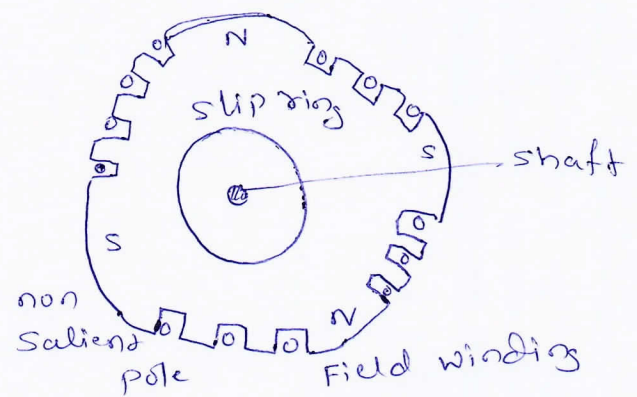 N
slip ring
S
shaft
S
N
non
Salient
pole
Field winding